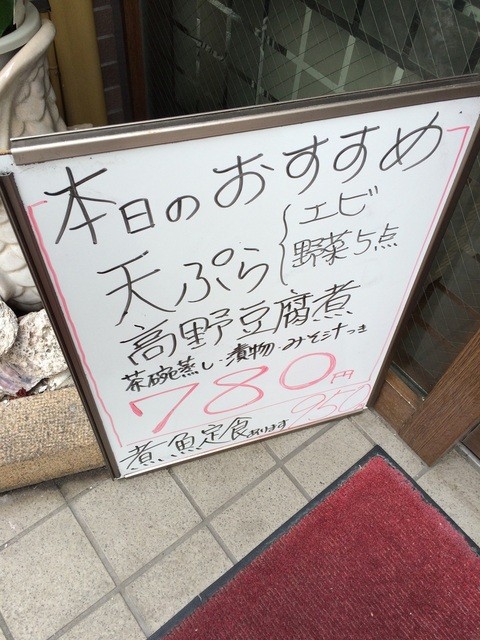 本日のおすすめ
天ぷら{エビ
野菜5点
高野豆腐煮
茶碗蒸し・漬物・みそ汁つき
780円
煮魚定食あります 950